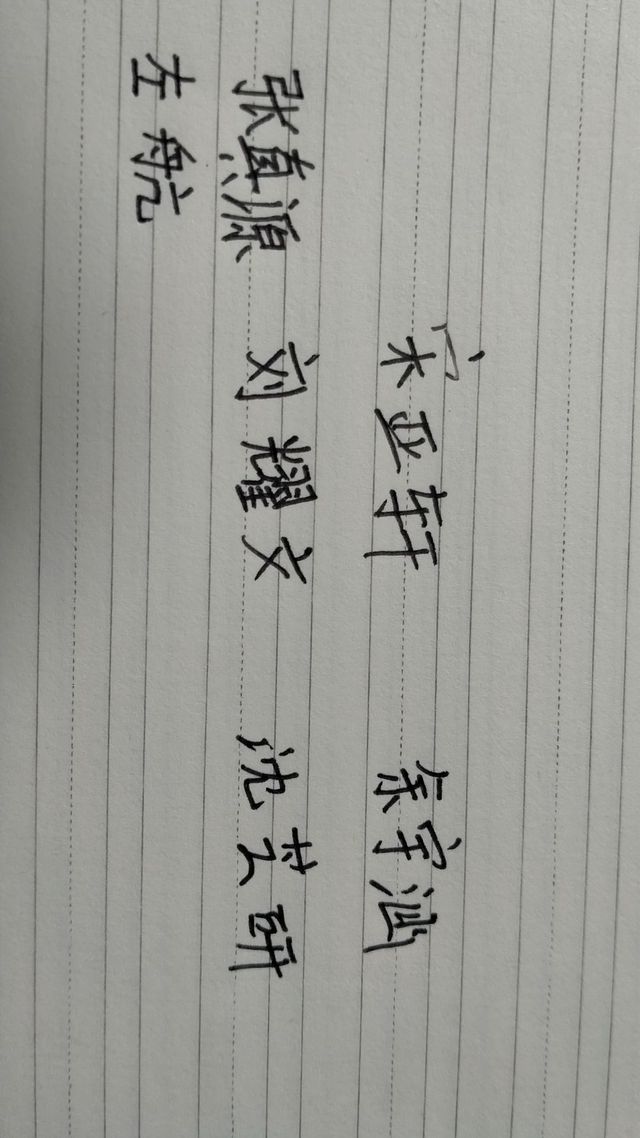 宋亚轩 余宇涵
张真源 刘耀文 沈 研
左航